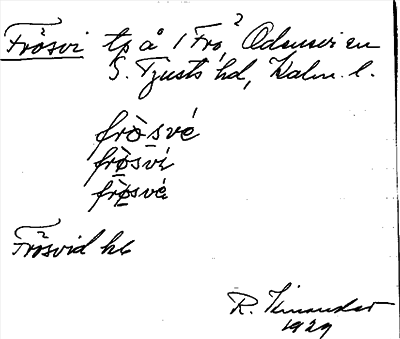 Frösvi tp å 1 Frö, Odensvi sn
S. Tjusts hd, Kalm. l.
frò̀své
frò̀sví
frò̀své
Frösvid hk
R. Kinander
1929